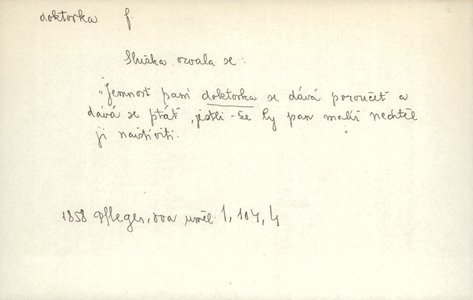 doktorka f
Služka ozvala se:
„Jemnost paní doktorka se dává poroučet a
dává se ptát, jestli-že by pan malíř nechtěl
ji naištíviti.
1858 Pfleger, Dva uměl. 1, 104, 4